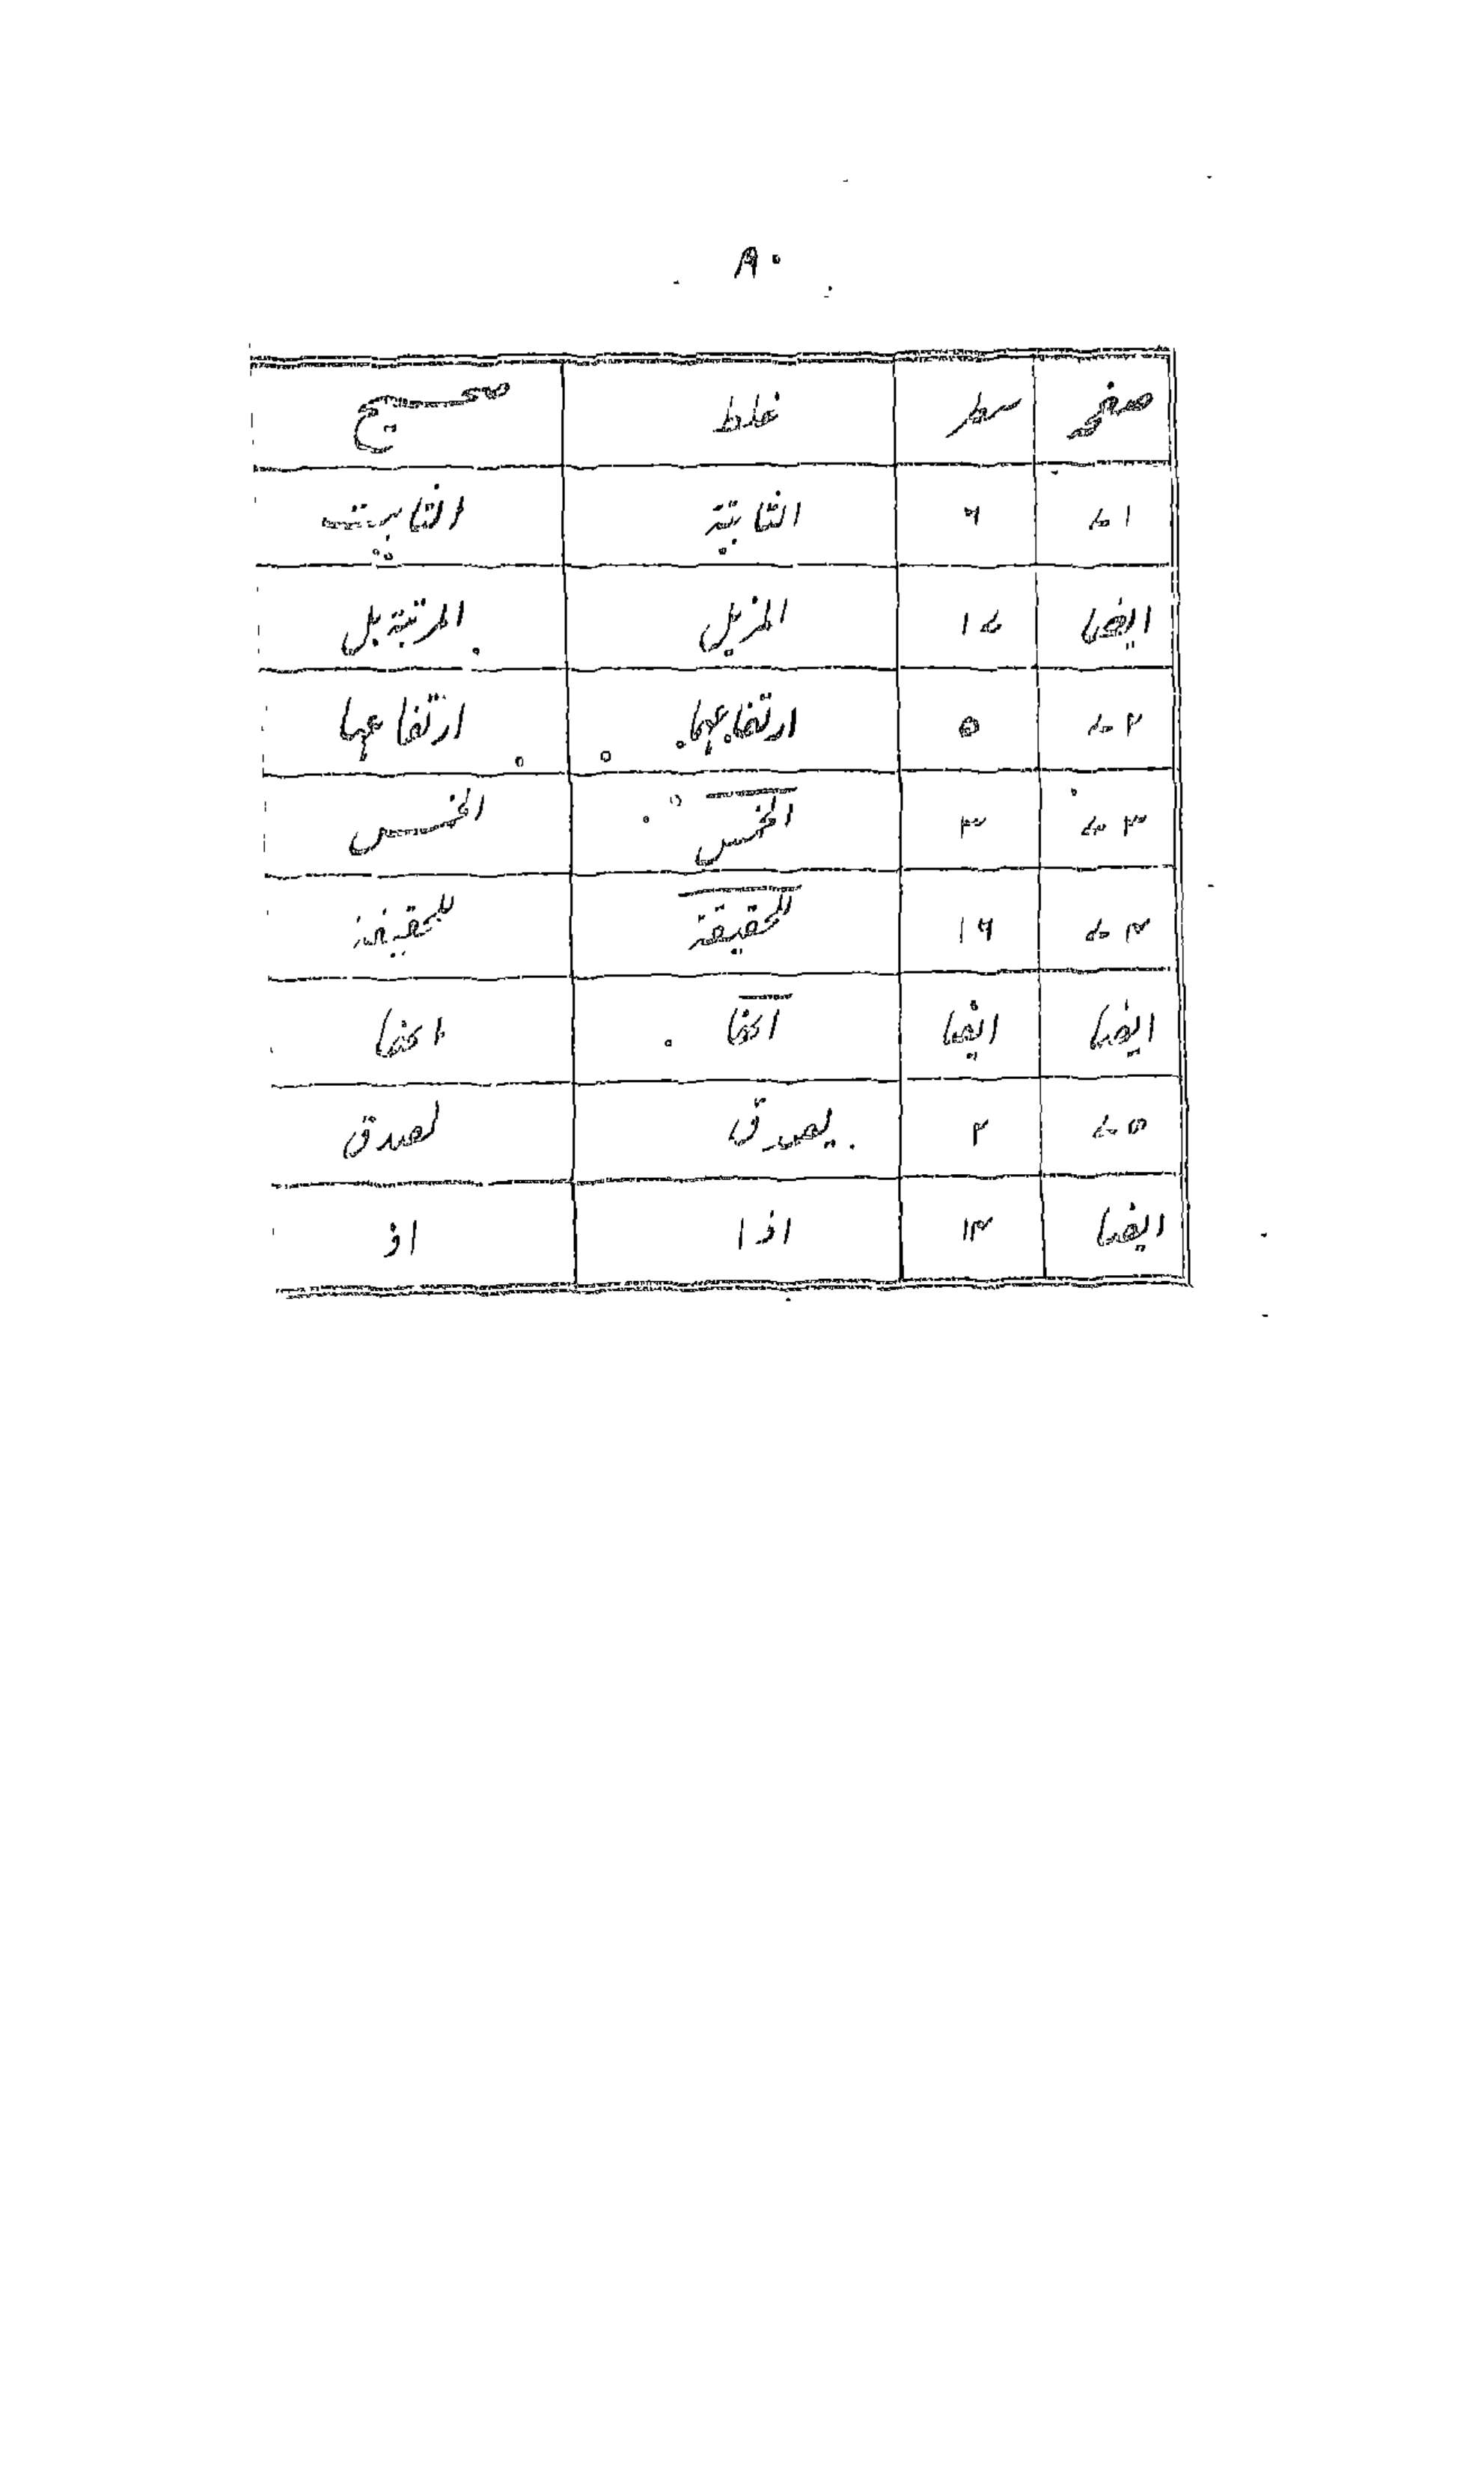 ۸۰
صفحہ سطر غلط صحیح
۷۱ ۶ الثابتة الثابت
ایضا ۱۷ المزیل المرتبة بل
۷۲ ۵ ارتفاعهما ارتفاعها
۷۳ ۳ الخمس الخمس
۷۴ ۱۶ للحقیقة للحقیقة
ایضا ایضا
۷۵ ۲ یصدق لصدق
ایضا ۱۴ اذا اذ